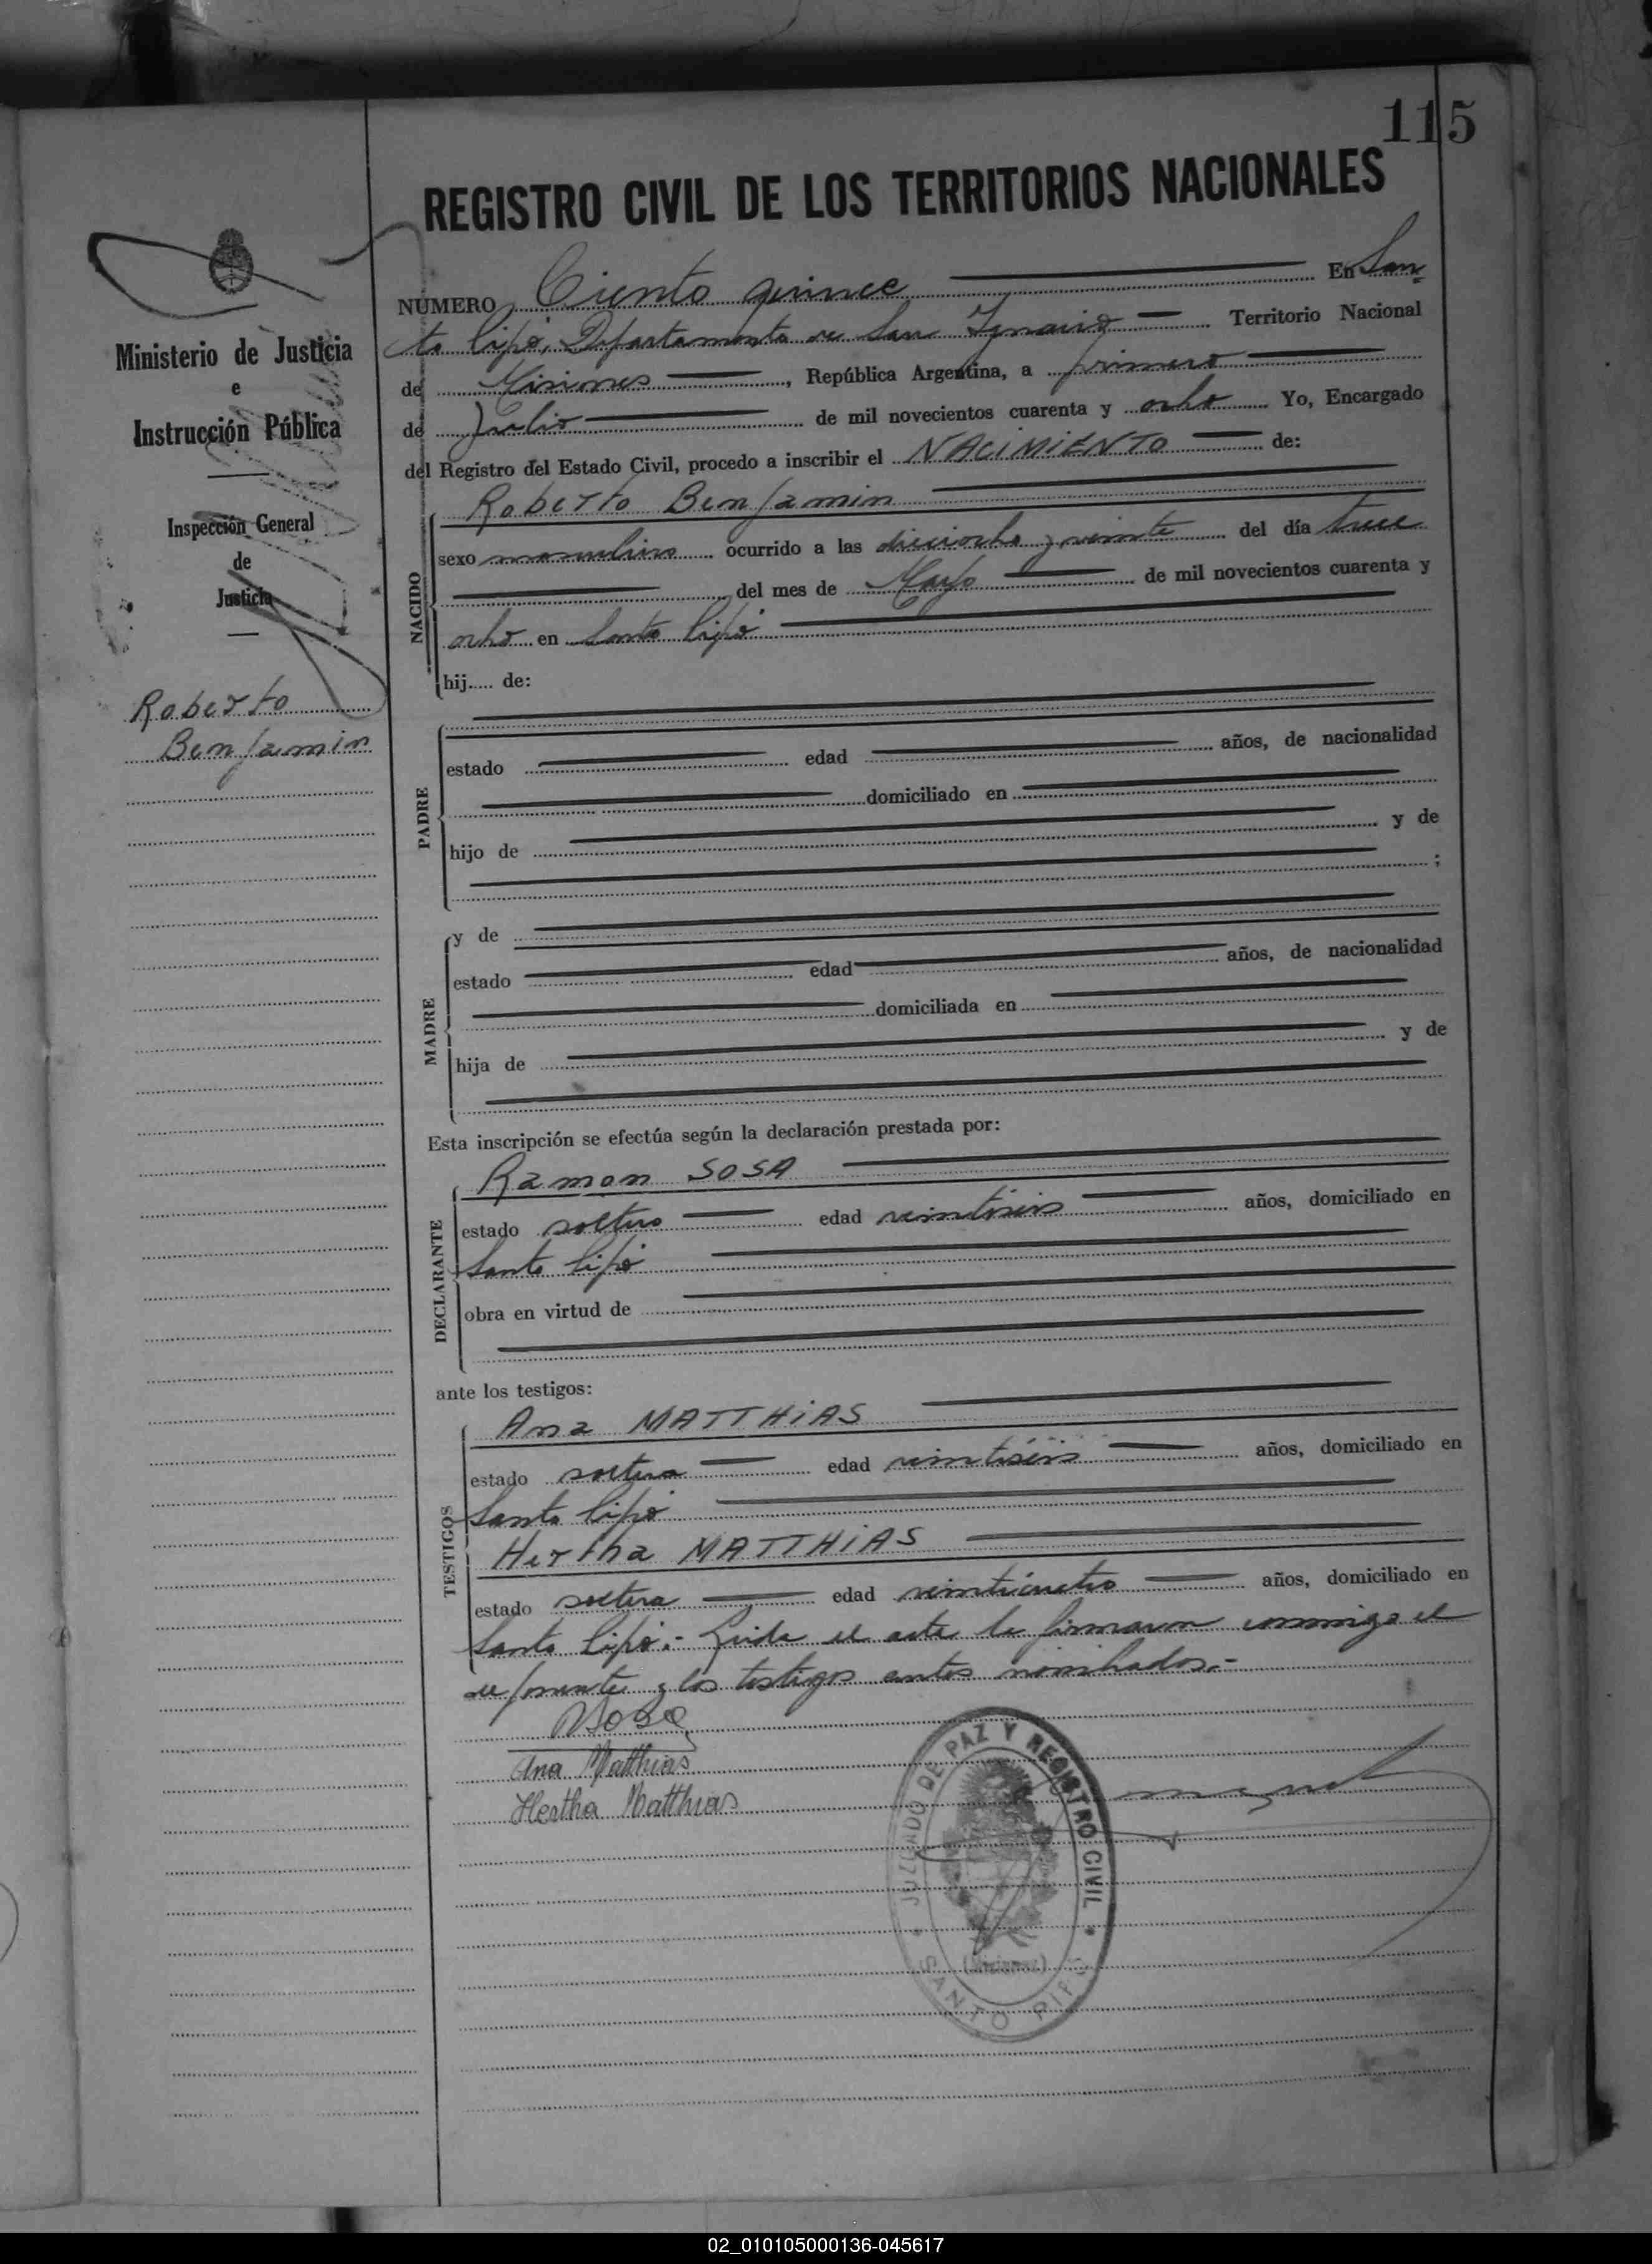 115
REGISTRO CIVIL DE LOS TERRITORIOS NACIONALES
Ministerio de Justicia
e
Instrucción Pública
Inspección General
de
Justicia
Roberto
Benjamin
NUMERO Ciento quince En San
to Pipó, Departamento de San Ignacio Territorio Nacional
de Misiones, República Argentina, a primero
de Julio de mil novecientos cuarenta y ocho Yo, Encargado
del Registro del Estado Civil, procedo a inscribir el NACIMIENTO de:
NACIDO
Roberto Benjamin
sexo masculino ocurrido a las dieciocho y veinte del día trece
del mes de Mayo de mil novecientos cuarenta y
ocho en Santo Pipó
hij..... de:
PADRE
estado edad años, de nacionalidad
domiciliado en
hijo de y de
;
MADRE
y de
estado edad años, de nacionalidad
domiciliada en
hija de y de
Esta inscripción se efectúa según la declaración prestada por:
DECLARANTE
Ramon SOSA
estado soltero edad veintiseis años, domiciliado en
Santo Pipó
obra en virtud de
ante los testigos:
TESTIGOS
Ana MATTHIAS
estado soltera edad veintiséis años, domiciliado en
Santo Pipó
Hertha MATTHIAS
estado soltera edad veinticuatro años, domiciliado en
Santo Pipó.- Leida el acta la firmaron conmigo el
deponente y los testigos antes nombrados.-
RSosa
Ana Matthias
Hertha Matthias
JUZGADO DE PAZ Y REGISTRO CIVIL
(Misiones)
SANTO PIPÓ
02_010105000136-045617